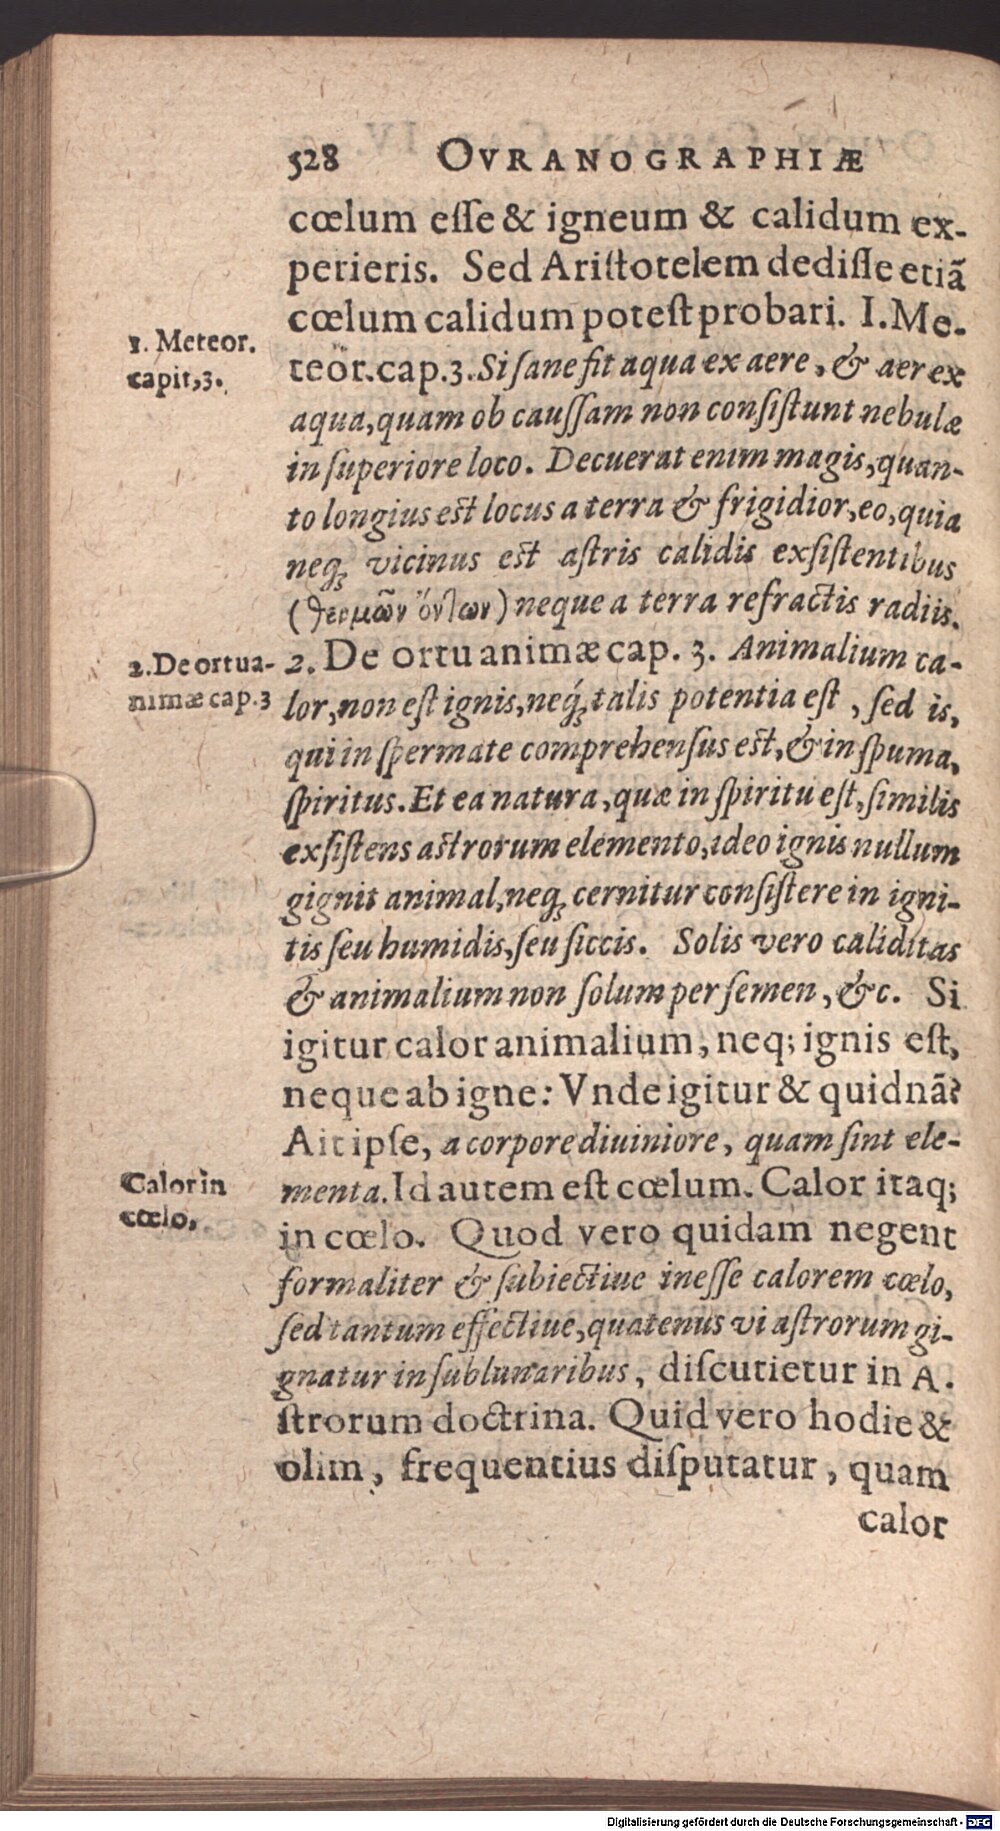 528 OVRANOGRAPHIÆ
cœlum eſſe & igneum & calidum ex-
perieris. Sed Ariſtotelem dediſſe etiã
cœlum calidum poteſt probari. I. Me-
1. Meteor.
capit, 3.
teor. cap. 3. Si ſane fit aqua ex aere, & aer ex
aqua, quam ob cauſſam non conſiſtunt nebulæ
in ſuperiore loco. Decuerat enim magis, quan-
to longius eſt locus a terra & frigidior, eo, quia
neq; vicinus eſt aſtris calidis exſiſtentibus
(θερμῶν ὄντων) neque a terra refractis radiis.
2. De ortu a-
nimæ cap. 3
2. De ortu animæ cap. 3. Animalium ca-
lor, non eſt ignis, neq́; talis potentia eſt, ſed is,
qui in ſpermate comprehenſus eſt, & in ſpuma,
ſpiritus. Et ea natura, quæ in ſpiritu eſt, ſimilis
exſiſtens aſtrorum elemento, ideo ignis nullum
gignit animal, neq; cernitur conſiſtere in igni-
tis ſeu humidis, ſeu ſiccis. Solis vero caliditas
& animalium non ſolum per ſemen, &c. Si
igitur calor animalium, neq; ignis eſt,
neque ab igne: Vnde igitur & quidnã?
Ait ipſe, a corpore diuiniore, quam ſint ele-
Calor in
cœlo.
menta. Id autem eſt cœlum. Calor itaq;
in cœlo. Quod vero quidam negent
formaliter & ſubiectiue ineſſe calorem cœlo,
ſed tantum effectiue, quatenus vi aſtrorum gi-
gnatur in ſublunaribus, diſcutietur in A-
ſtrorum doctrina. Quid vero hodie &
olim, frequentius diſputatur, quam
calor
Digitalisierung gefördert durch die Deutsche Forschungsgemeinschaft - DFG